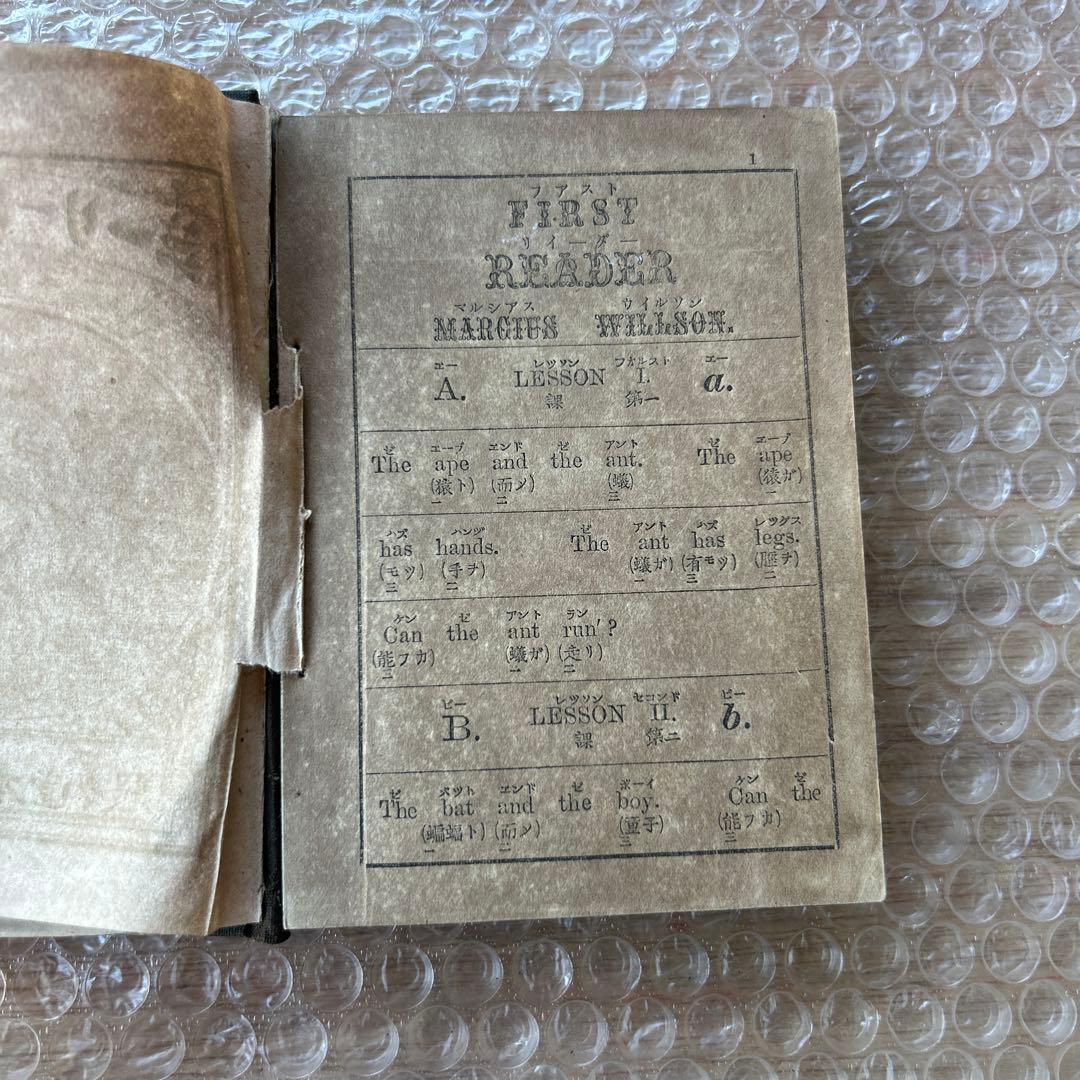 1
フアスト
FIRST
リイーダー
READER
マルシアス ウイルソン
MARCIUS WILLSON.
エー レツソン フオルスト エー
A. LESSON I. a.
課 第一
ゼ エープ エンド ゼ アント ゼ エープ
The ape and the ant. The ape
(猿ト) (而メ) (蟻) (猿ガ)
一 二 三 一
ハズ ハンヅ ゼ アント ハズ レツグス
has hands. The ant has legs.
(モツ) (手ヲ) (蟻ガ) (有モツ) (脛ヲ)
三 二 一 三 二
ケン ゼ アント ラン
Can the ant run'?
(能フカ) (蟻ガ) (走リ)
三 一 二
ビー レツソン セコンド ビー
B. LESSON II. b.
課 第二
ゼ バツト エンド ゼ ボーイ ケン ゼ
The bat and the boy. Can the
(蝙蝠ト) (而メ) (童子) (能フカ)
一 二 三 三